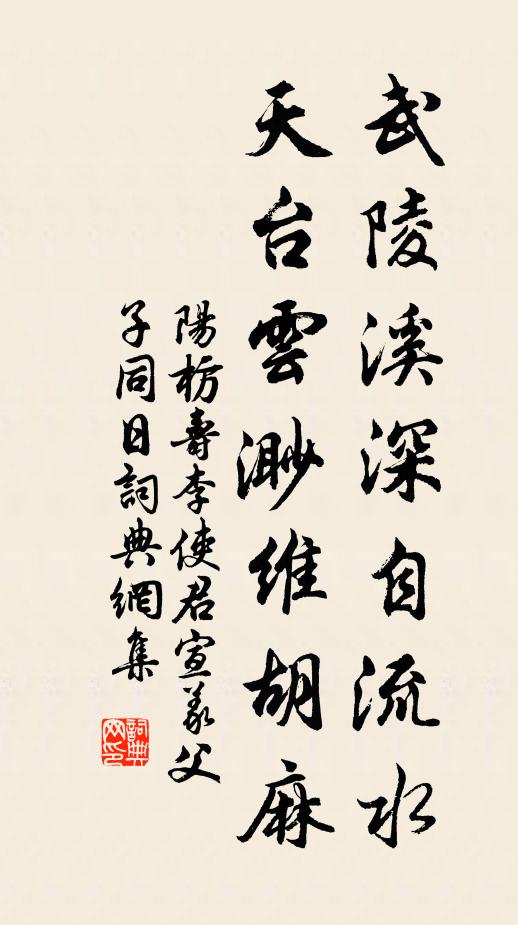 武陵溪深自流水
天台雲渺維胡麻
陽枋壽李使君宣義父
子同日詞典網集
詞典网印